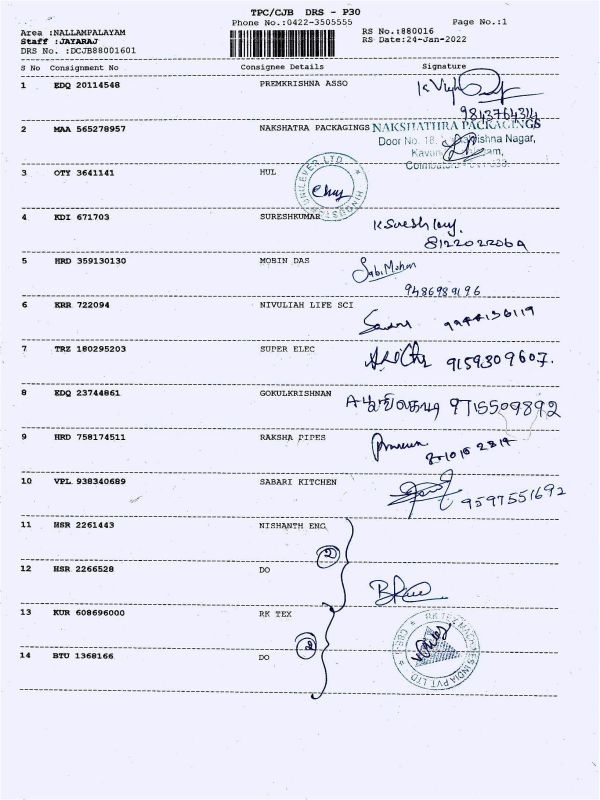 TPC/CJB DRS - P30
Phone No.:0422-3505555
Page No.:1
Area :NALLAMPALAYAM
Staff :JAYARAJ
DRS No. :DCJB88001601
RS No.:880016
RS Date:24-Jan-2022
S No Consignment No Consignee Details Signature
1 EDQ 20114548 PREMKRISHNA ASSO
9843764314
2 MAA 565278957 NAKSHATRA PACKAGINGS NAKSHATHRA PACKAGINGS
Door No. 18, ishna Nagar,
3 OTY 3641141 HUL
HINDUSTAN UNILEVER LTD
4 KDI 671703 SURESHKUMAR
8122022069
5 HRD 359130130 MOBIN DAS Sabi Mohan
9486989196
6 KRR 722094 NIVULIAH LIFE SCI
9944136119
7 TRZ 180295203 SUPER ELEC 9159309607.
8 EDQ 23744861 GOKULKRISHNAN 9715509892
9 HRD 758174511 RAKSHA PIPES
10 VPL 938340689 SABARI KITCHEN
9597551692
11 HSR 2261443 NISHANTH ENG
2
12 HSR 2266528 DO
13 KUR 608696000 RK TEX
2
14 BTU 1368166 DO
INDIA PVT LTD